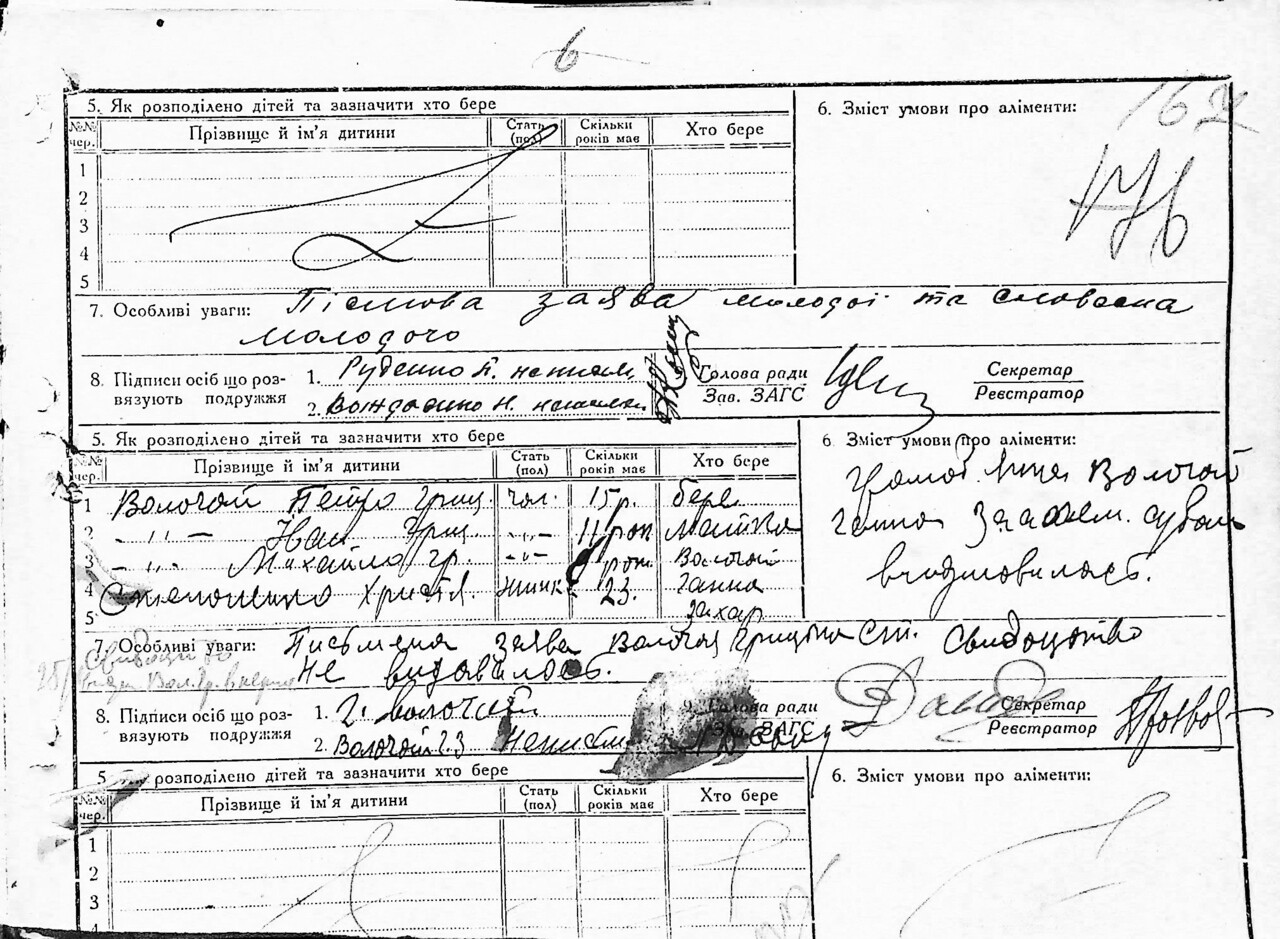 6
5. Як розподілено дітей та зазначити хто бере
6. Зміст умови про аліменти:
162
№№ чер.
Прізвище й ім'я дитини
Стать (пол)
Скільки років має
Хто бере
176
1
2
3
4
5
7. Особливі уваги: Пісмова заява молодої та словесна
молодого
8. Підписи осіб що роз-
вязують подружжя
1. Руденко П. неписм
2.
9. Голова ради
Зав. ЗАГС
Секретар
Реєстратор
5. Як розподілено дітей та зазначити хто бере
6 Зміст умови про аліменти:
№№ чер.
Прізвище й ім'я дитини
Стать (пол)
Скільки років має
Хто бере
1 Волочай Петро Гриц. чол. 15 р. бере
2 -"- Іван Гриц. -"- 11 рок Матка
3 -"- Михайло Гр. -"- рок Волочай
4 Христя. 23. Ганна
5 Захар
Волочай
Ганна
відмовилась.
7. Особливі уваги: Письмена заява Волочая Грицька Ст. Свидоцтво
не видавалось.
8. Підписи осіб що роз-
вязують подружжя
1. Г. Волочай
2. Волочай Г.З неписм
9. Голова ради
Зав. ЗАГС
Секретар
Реєстратор
5. Як розподілено дітей та зазначити хто бере
6. Зміст умови про аліменти:
№№ чер.
Прізвище й ім'я дитини
Стать (пол)
Скільки років має
Хто бере
1
2
3
4